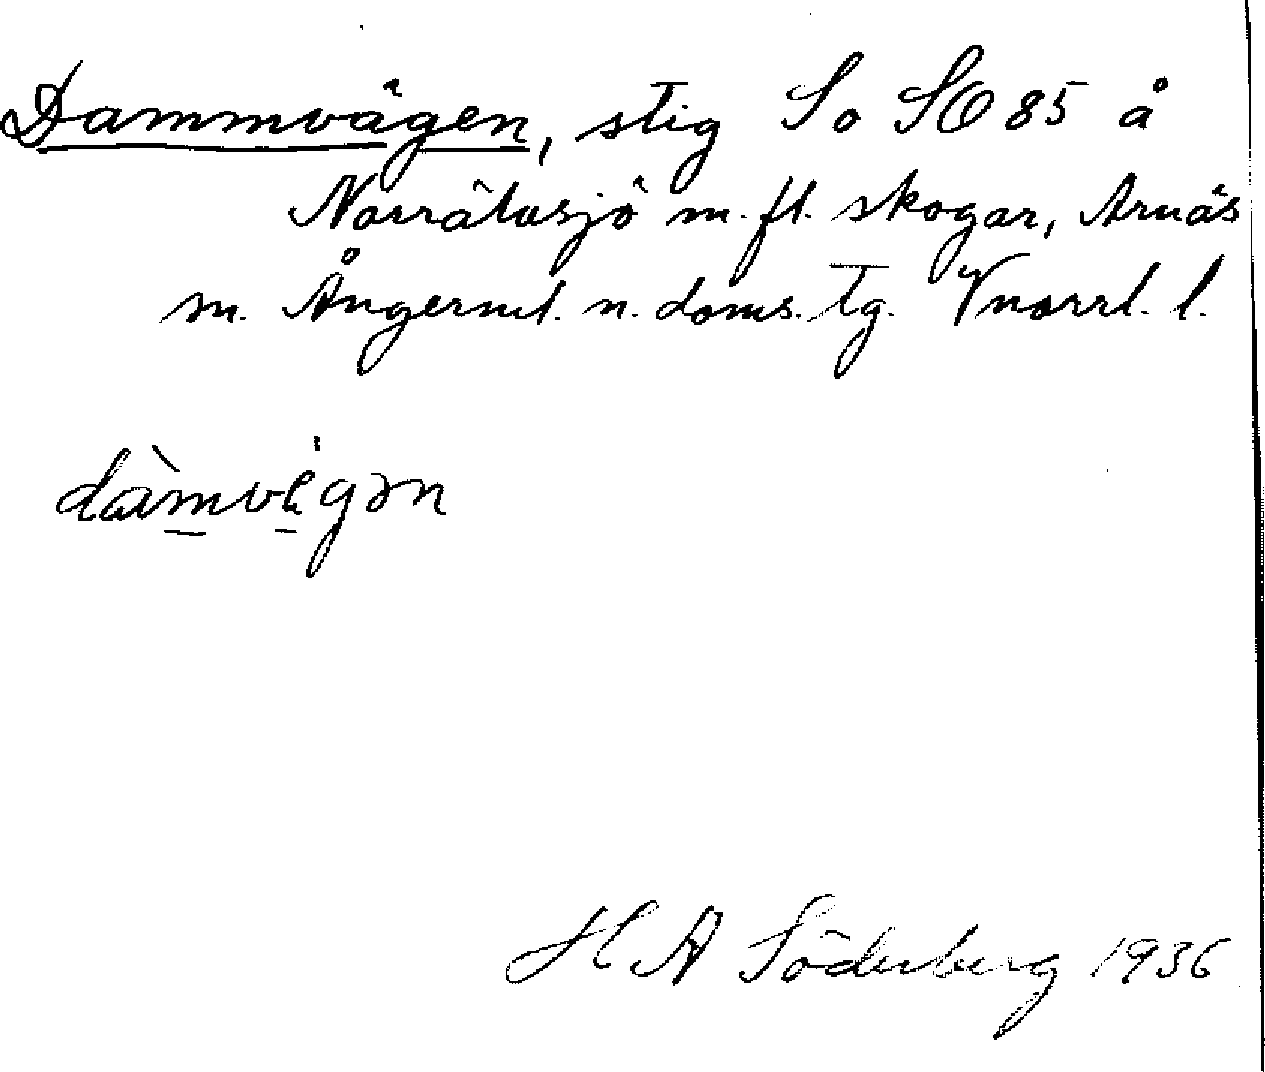 Dammvägen, stig So SO 85 å
Norrätusjö m. fl. skogar, Arnäs
sn. Ångerml. n. doms. tg. Vnorrl. l.
dàmvégən
H A Söderberg 1936